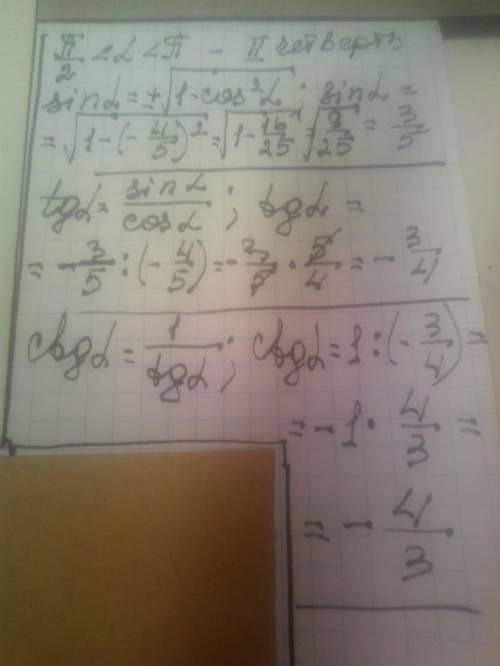 π/2 < α < π - II четверть
sin α = ±√(1-cos²α); sin α =
= √(1-(-4/5)²) = √(1-16/25) = √(9/25) = 3/5
tg α = sin α/cos α; tg α =
= -3/5 : (-4/5) = -3/5 · 5/4 = -3/4
ctg α = 1/tg α; ctg α = 1 : (-3/4) =
= -1 · 4/3 =
= -4/3